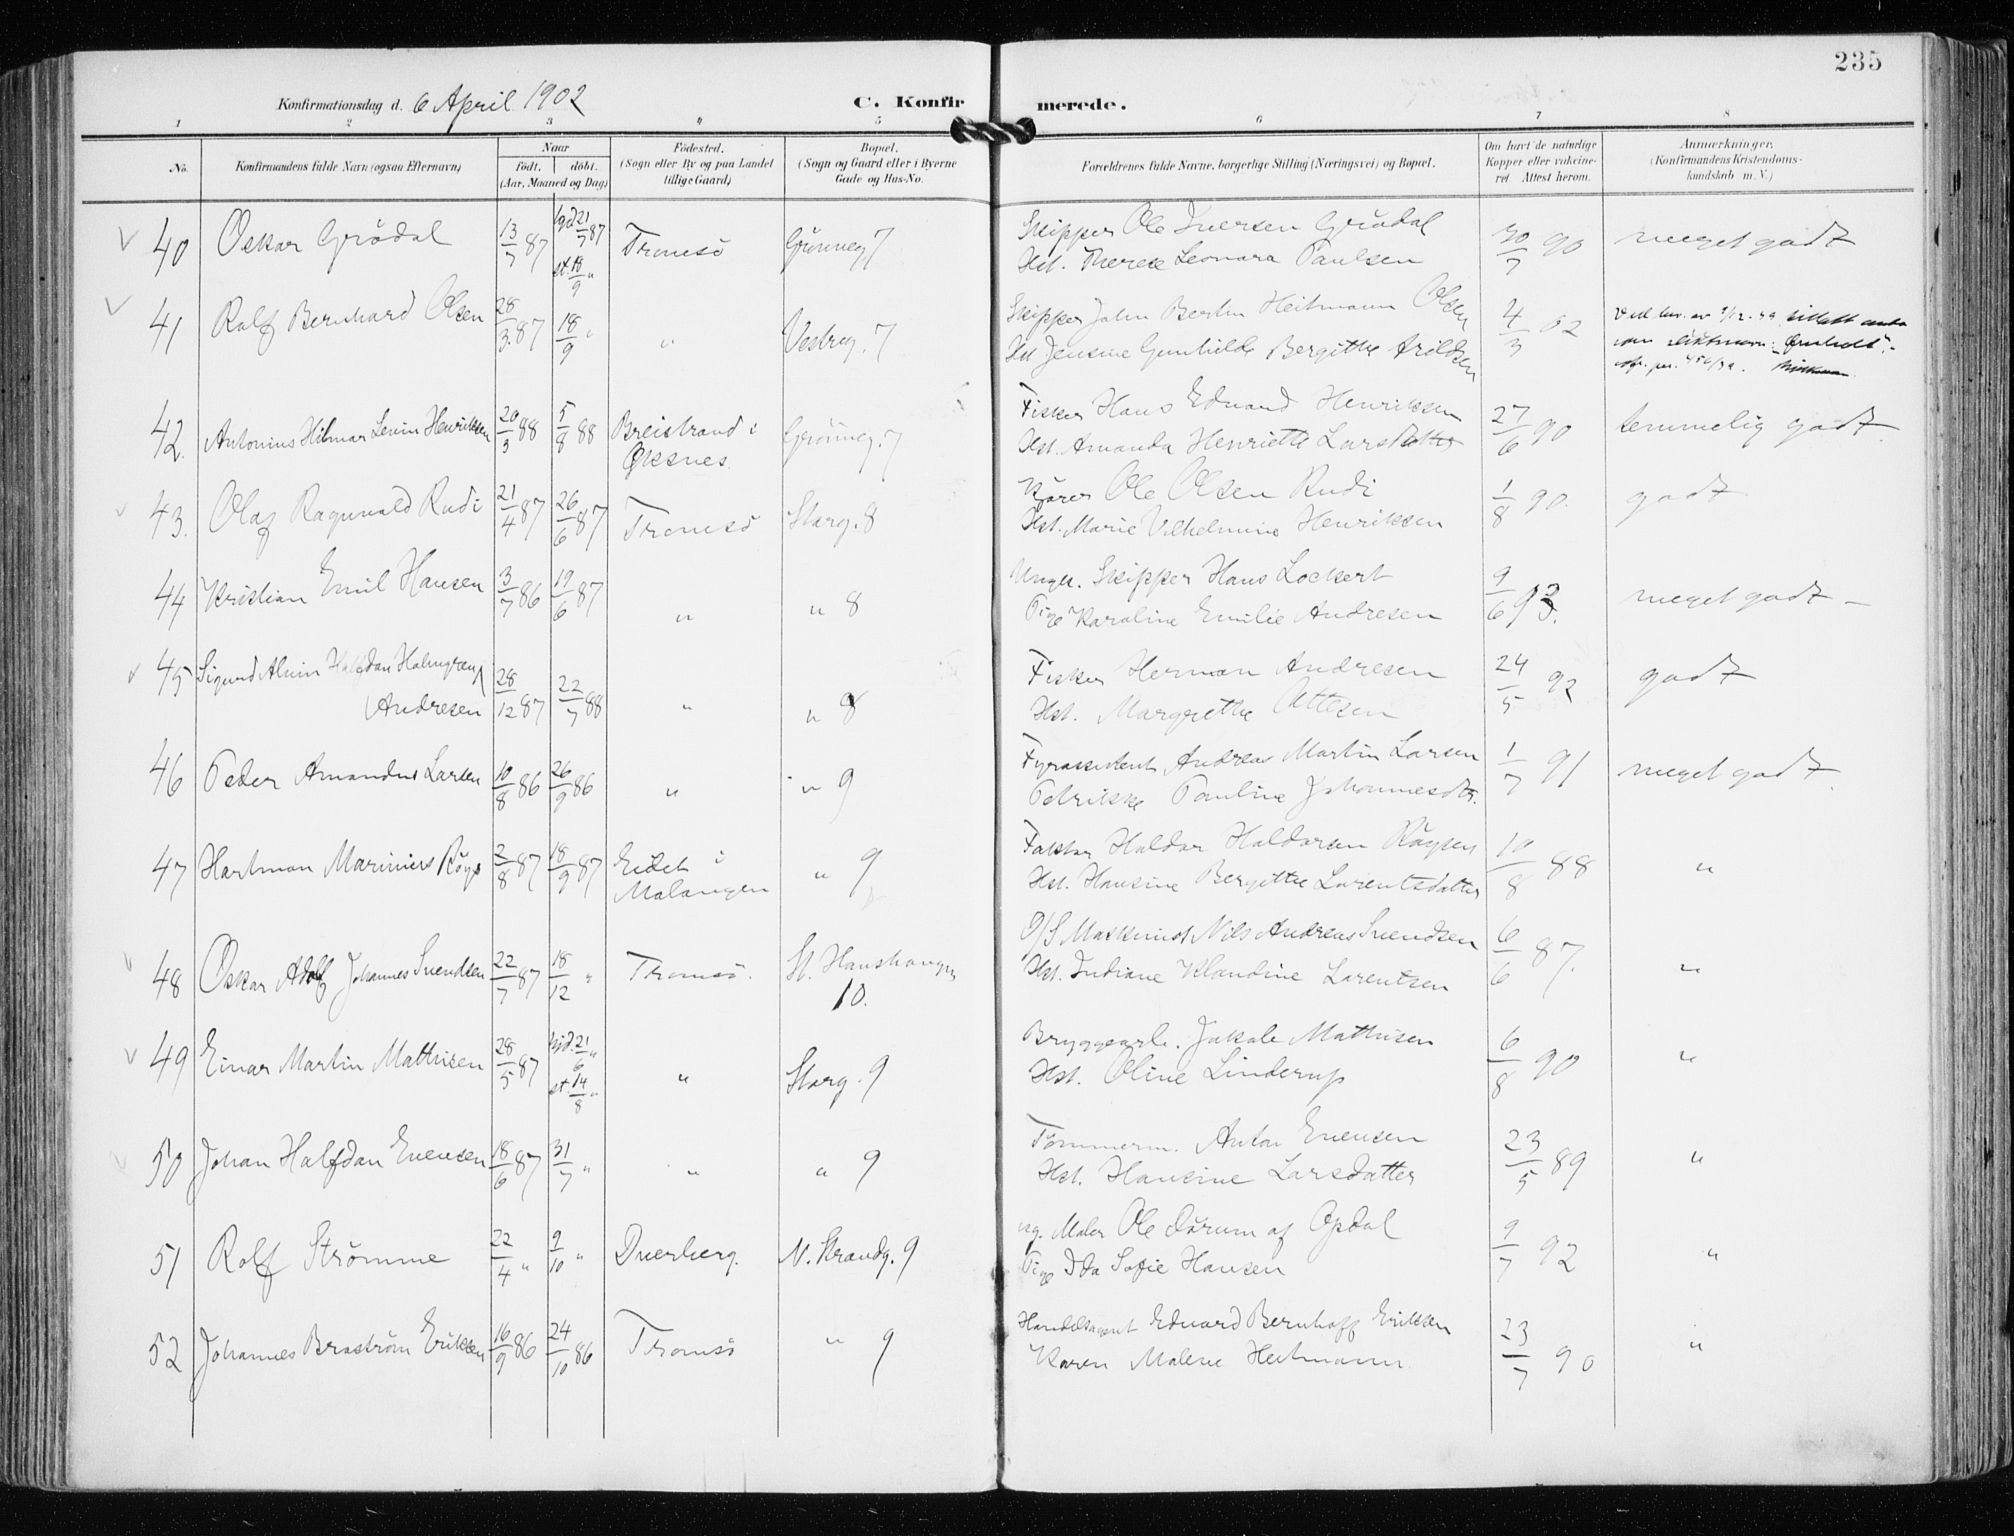 235
Konfirmationsdag d. 6 April 1902 C. Konfirmerede.
1 2 3 4 5 6 7 8
No. Konfirmandens fulde Navn (ogsaa Efternavn) Naar født, døbt. (Aar, Maaned og Dag) Fødested. (Sogn eller By og paa Landet tillige Gaard) Bopæl. (Sogn og Gaard eller i Byerne Gade og Hus-No. Forældrenes fulde Navne, borgerlige Stilling (Næringsvei) og Bopæl. Om havt de naturlige Kopper eller vakcineret. Attest herom. Anmærkninger. (Konfirmandens Kristendomskundskab m. V.)
40 Oskar Grødal 13/7 87 hjd 21/7 87 st. 18/9 " Tromsø Grønneg. 7 Skipper Ole Iversen Grødal
Hst. Therese Leonara Paulsen 30/7 90 meget godt
41 Rolf Bernhard Olsen 28/3 87 18/9 " " Vestreg. 7 Skipper John Berthn Heitmann Olsen
Hst Jensine Gunhilde Bergitte Arildsen 4/3 02
42. Antonius Hilmar Levin Henriksen 20/3 88 5/8 88 Breistrand i Øksnes. Grønneg. 7 Fisker Hans Edvard Henriksen
Hst. Amanda Henriette Larsdatter 27/6 90 temmelig godt
43. Olaf Ragnvald Rudi 21/4 87 26/6 87 Tromsø Storg. 8 Kjører Ole Olsen Rudi
Hst. Marie Vilhelmine Henriksen 1/8 90. godt
44 Kristian Emil Hansen 3/7 86 19/6 87 " " 8 Ungk. Skipper Hans Lockert
Pige Karoline Emilie Andresen 9/6 93. meget godt -
45 Sigurd Alvin Halfdan Holmgren Andresen 28/12 87 22/7 88 " " 8 Fisker Herman Andresen
Hst. Margrethe Ottesen 24/5 92 godt
46 Peder Amandus Larsen 10/8 86 26/9 86 " " 9 Fyrassistent Andreas Martin Larsen
Petrikke Pauline Johannesdtr. 1/7 91 meget godt
47 Hartman Marinius Røys 2/8 87 18/9 87 Eidet i Malangen " 9 Faktor Haldor Haldorsen Røysen
Hst. Hansine Bergitte Larentsdatter 10/8 88 "
48 Oskar Adolf Johannes Svendsen 22/7 87 18/12 " Tromsø. St. Hanshaugen 10. D/S Maskinist Nils Andreas Svendsen
Hst. Indiane Klaudine Lorentsen 6/6 87. "
49 Einar Martin Mathisen 28/5 87 hjd. 21/6 " st. 14/8 " " Storg. 9 Bryggearb. Jakob Mathisen
Hst. Oline Linderup 6/8 90 "
50 Johan Halfdan Evensen 18/6 87 31/7 " " " 9 Tømmerm. Anton Evensen
Hst. Hansine Larsdatter 23/5 89 "
51 Rolf Strømme 22/4 " 9/10 " Dverberg. N. Strandg. 9 ug. Maler Ole Dørum af Opdal
Pige Ida Sofie Hansen 9/7 92 "
52 Johannes Brostrøm Eriksen 16/9 86 24/10 86 Tromsø " 9 Handelsagent Edvard Bernhoff Eriksen
Karen Malene Heitmann. 23/7 90 "